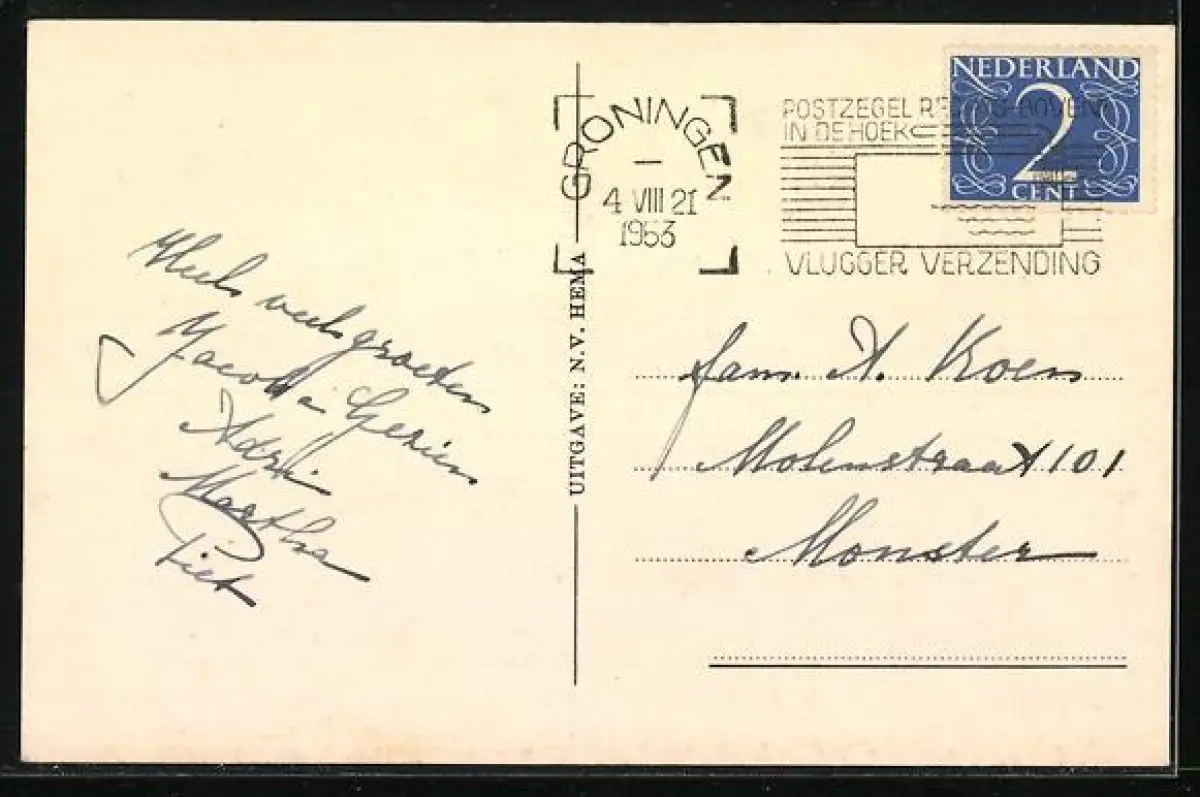 NEDERLAND
2
CENT
GRONINGEN
4 VIII 21
1953
POSTZEGEL RECHTS-BOVEN
IN DE HOEK
VLUGGER VERZENDING
UITGAVE: N.V. HEMA
Heel veel groeten
Jacob Gerien
Adri
Martha
Piet
Fam. A. Koen
Molenstraat 101
Monster